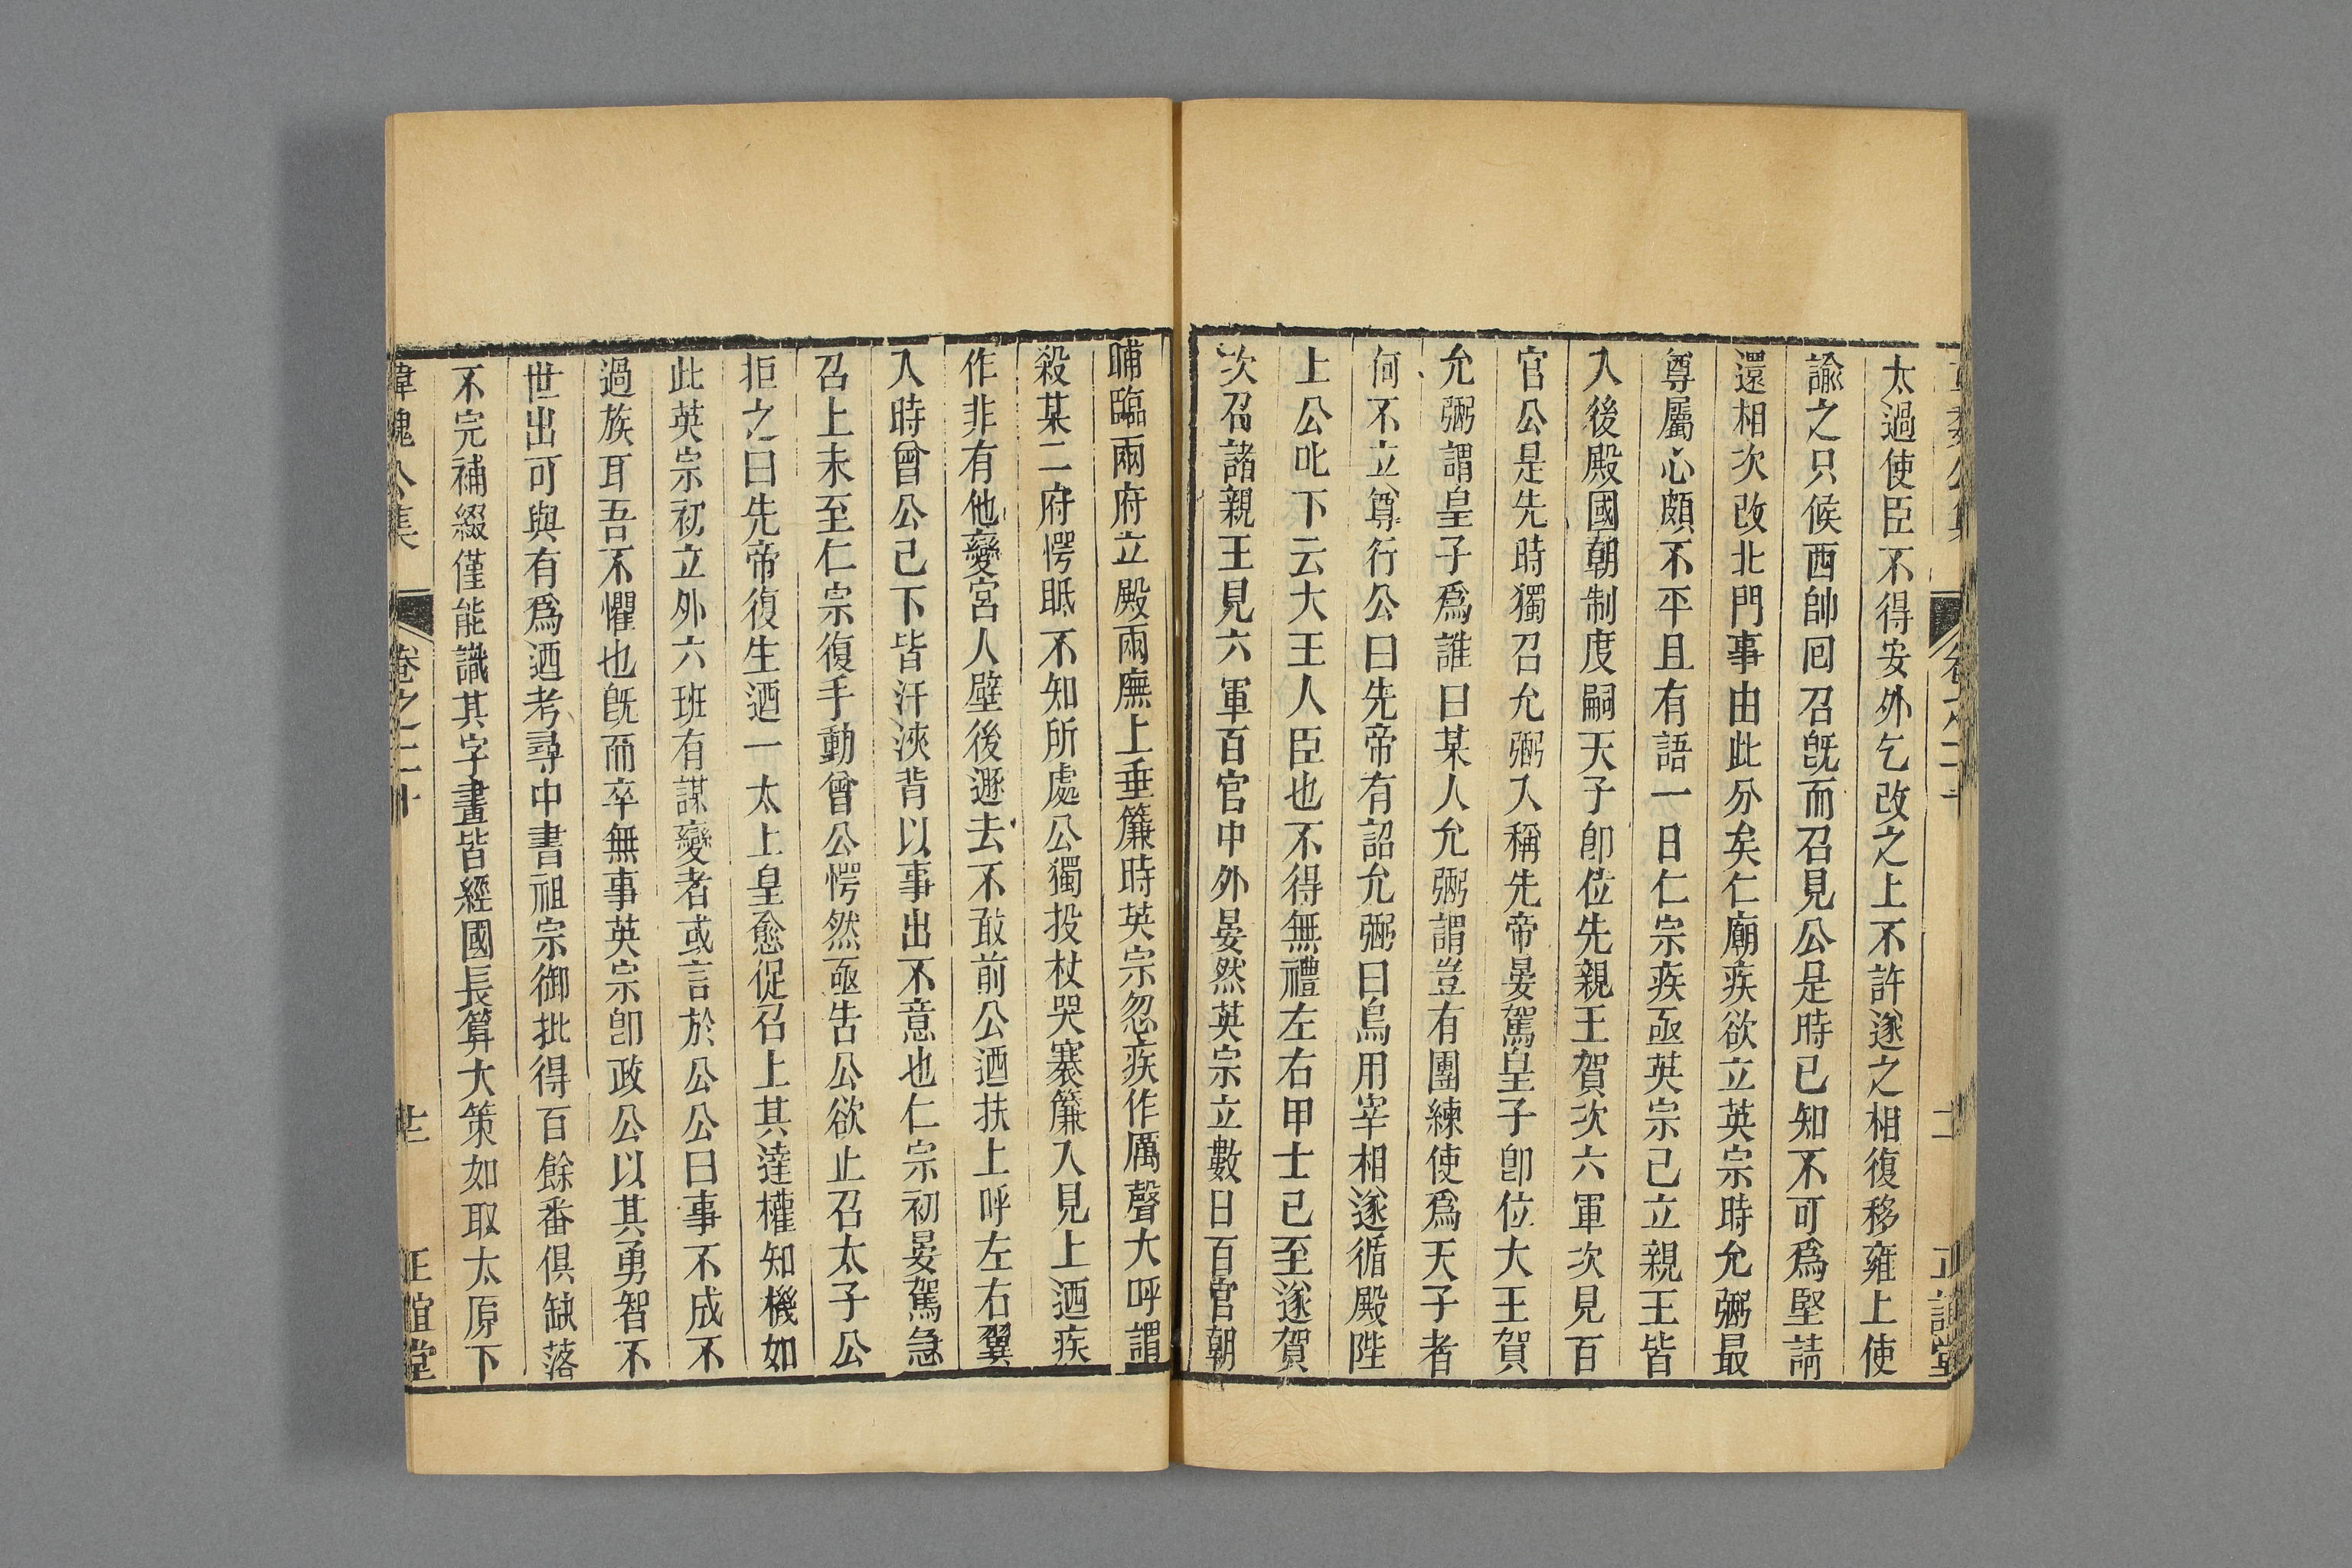 太過使臣不得安外乞改之上不許遂之相復移雍上使
諭之只候西帥囘召旣而召見公是時已知不可爲堅請
還相次改北門事由此分矣仁廟疾欲立英宗時允弼最
尊屬心頗不平且有語一日仁宗疾亟英宗已立親王皆
入後殿國朝制度嗣天子卽位先親王賀次六軍次見百
官公是先時獨召允弼入稱先帝晏駕皇子卽位大王賀
允弼謂皇子爲誰曰某人允弼謂豈有團練使爲天子者
何不立尊行公曰先帝有詔允弼曰烏用宰相遂循殿陛
上公叱下云大王人臣也不得無禮左右甲士已至遂賀
次召諸親王見六軍百官中外晏然英宗立數日百官朝
晡臨兩府立殿兩廡上垂簾時英宗忽疾作厲聲大呼謂
殺某二府愕眡不知所處公獨投杖哭褰簾入見上迺疾
作非有他變宮人壁後遯去不敢前公迺扶上呼左右翼
入時曾公已下皆汗浹背以事出不意也仁宗初晏駕急
召上未至仁宗復手動曾公愕然亟告公欲止召太子公
拒之曰先帝復生迺一太上皇愈促召上其達權知機如
此英宗初立外六班有謀變者或言於公公曰事不成不
過族耳吾不懼也旣而卒無事英宗卽政公以其勇智不
世出可與有爲迺考尋中書祖宗御批得百餘番俱缺落
不完補綴僅能識其字畫皆經國長算大策如取太原下
韓魏公集 卷之二十 廿 正誼堂